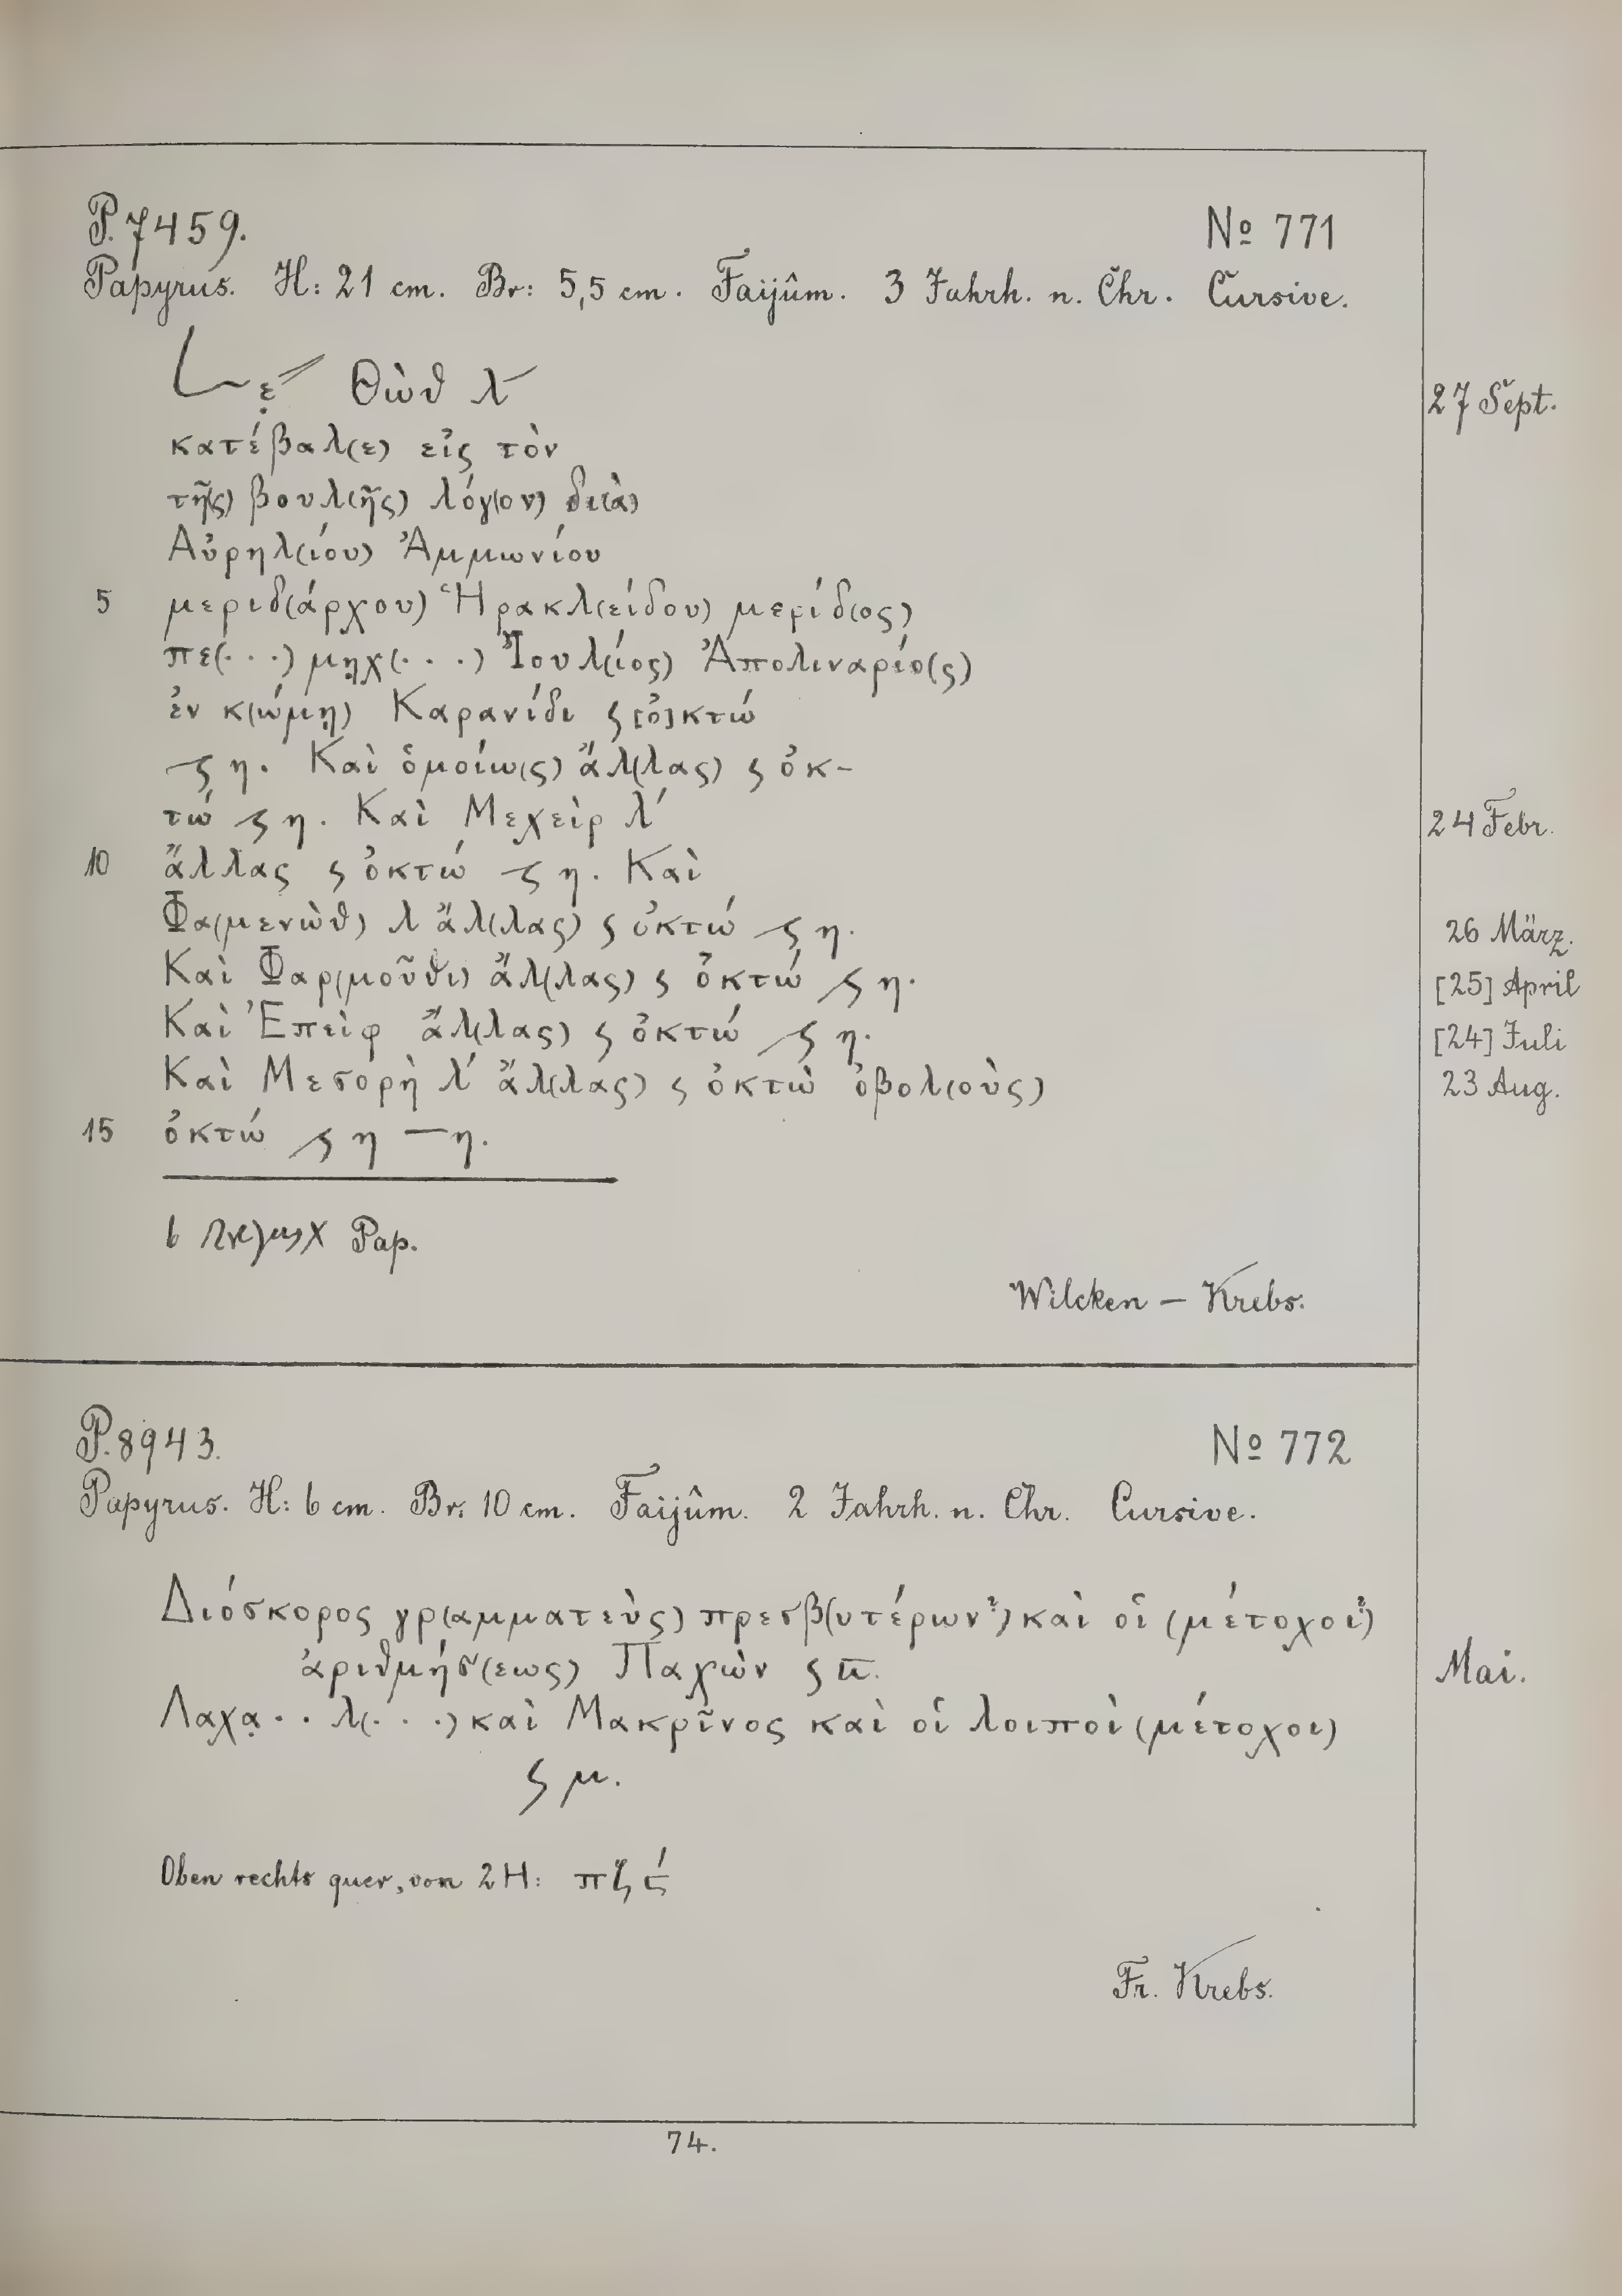 P. 7459.
No 771
Papyrus. H: 21 cm. Br: 5,5 cm. Faijûm. 3 Jahrh. n. Chr. Cursive.
L ε̣ Θὼθ λ
27 Sept.
κατέβαλ(ε) εἰς τὸν
τῆ(ς) βουλ(ῆς) λόγ(ον) δι(ὰ)
Αὐρηλ(ίου) Ἀμμωνίου
5 μεριδ(άρχου) Ἡρακλ(είδου) μερίδ(ος)
πε(· · ·) μη̣χ(· · ·) Ἰουλ(ίος) Ἀπολιναρίο(ς)
ἐν κ(ώμῃ) Καρανίδι ϛ [ὀ]κτώ
ϛ η. Καὶ ὁμοίω(ς) ἄλ(λας) ϛ ὀκ-
τώ ϛ η. Καὶ Μεχεὶρ λ´
24 Febr.
10 ἄλλας ϛ ὀκτώ ϛ η. Καὶ
Φα(μενὼθ) λ ἄλ(λας) ϛ ὀκτώ ϛ η.
26 März.
Καὶ Φαρ(μοῦθι) ἄλ(λας) ϛ ὀκτώ ϛ η.
[25] April
Καὶ Ἐπεὶφ ἄλ(λας) ϛ ὀκτώ ϛ η.
[24] Juli
Καὶ Μεσορὴ λ´ ἄλ(λας) ϛ ὀκτὼ ὀβολ(οὺς)
23 Aug.
15 ὀκτώ ϛ η — η.
6 Pap.
Wilcken — Krebs.
P. 8943.
No 772
Papyrus. H: 6 cm. Br: 10 cm. Faijûm. 2 Jahrh. n. Chr. Cursive.
Διόσκορος γρ(αμματεὺς) πρεσβ(υτέρων?) καὶ οἱ (μέτοχοι?)
ἀριθμήσ(εως) Παχὼν ϛ π̅.
Mai.
Λαχα̣ · · λ(· · ·) καὶ Μακρῖνος καὶ οἱ λοιποὶ (μέτοχοι)
ϛ μ.
Oben rechts quer, von 2 H:
Fr. Krebs.
74.